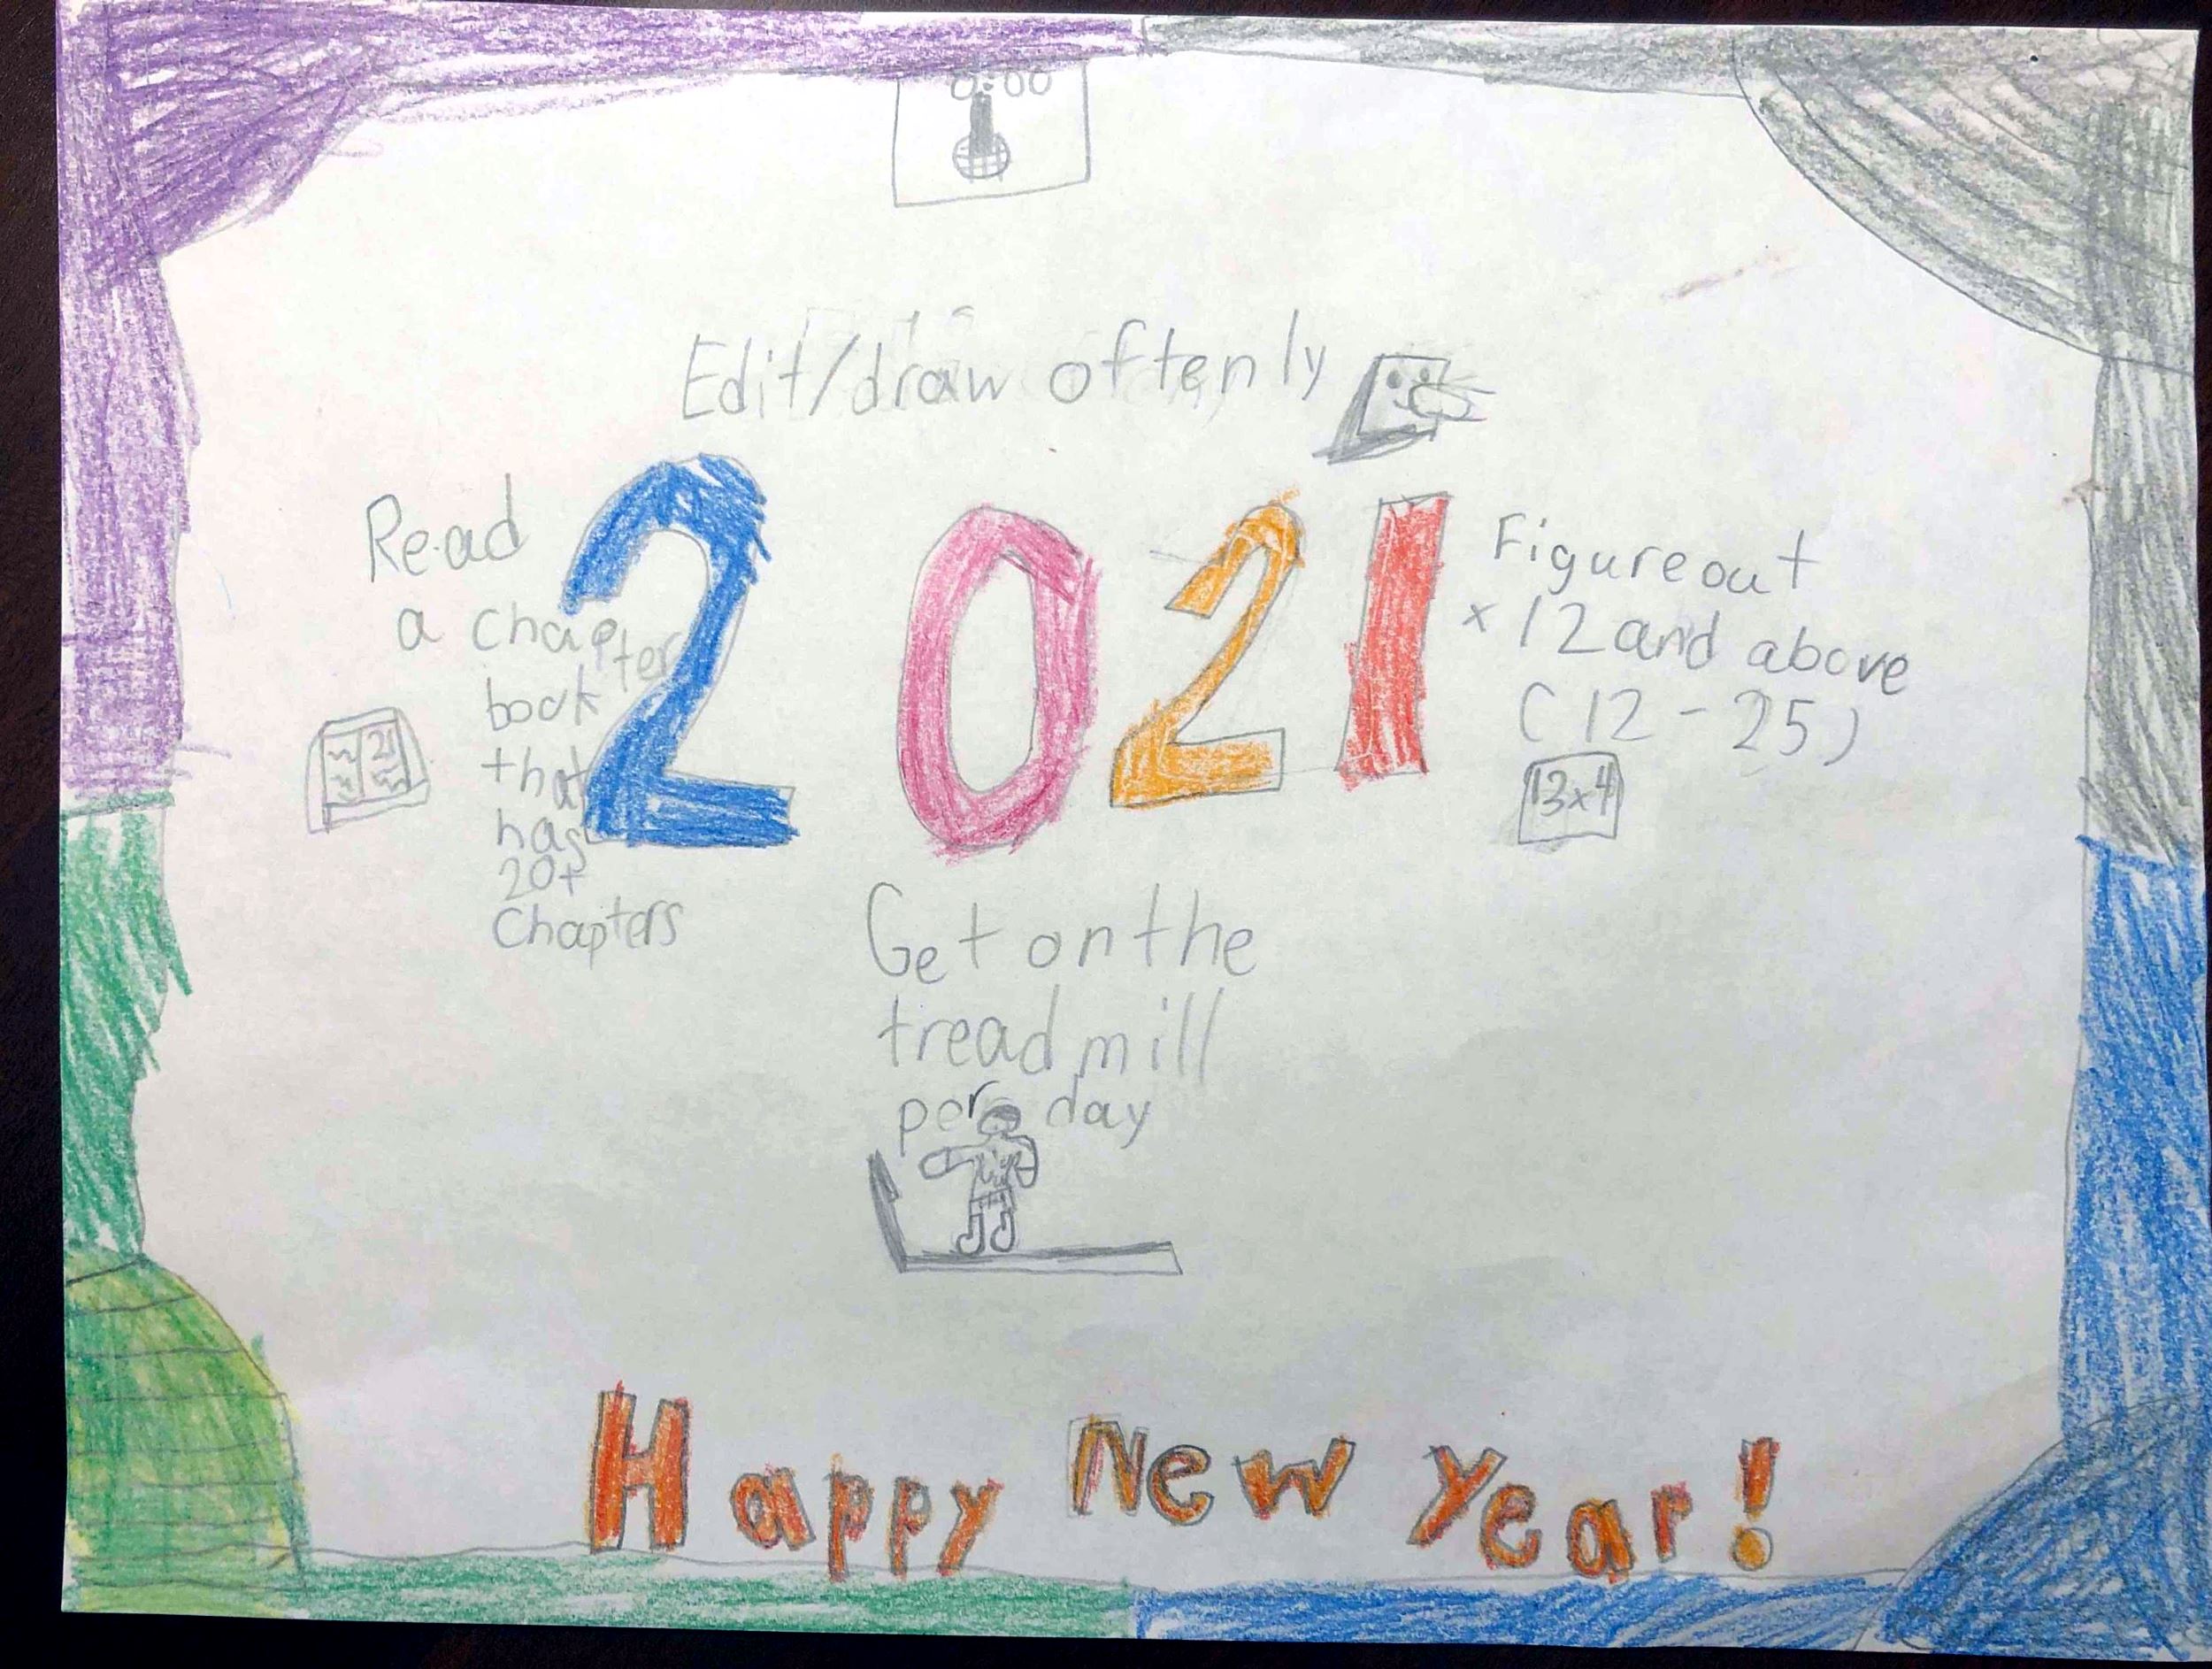 0:00
Edit/draw oftenly
Read
a chapter
book
that
has
20+
Chapters
21
2021
Figure out
x 12 and above
(12-25)
13x4
Get on the
treadmill
per day
Happy New Year!